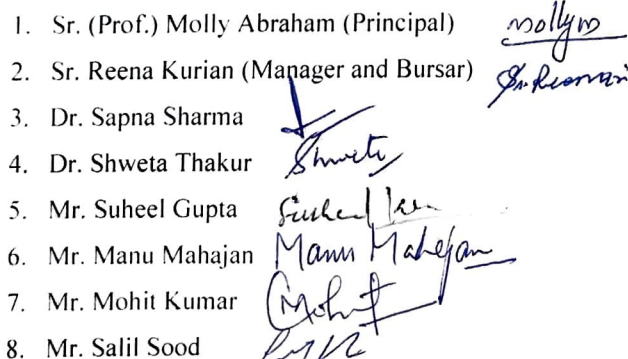 1. Sr. (Prof.) Molly Abraham (Principal) Mollym
2. Sr. Reena Kurian (Manager and Bursar)
3. Dr. Sapna Sharma
4. Dr. Shweta Thakur Shweta
5. Mr. Suheel Gupta
6. Mr. Manu Mahajan Manu Mahajan
7. Mr. Mohit Kumar Mohit
8. Mr. Salil Sood